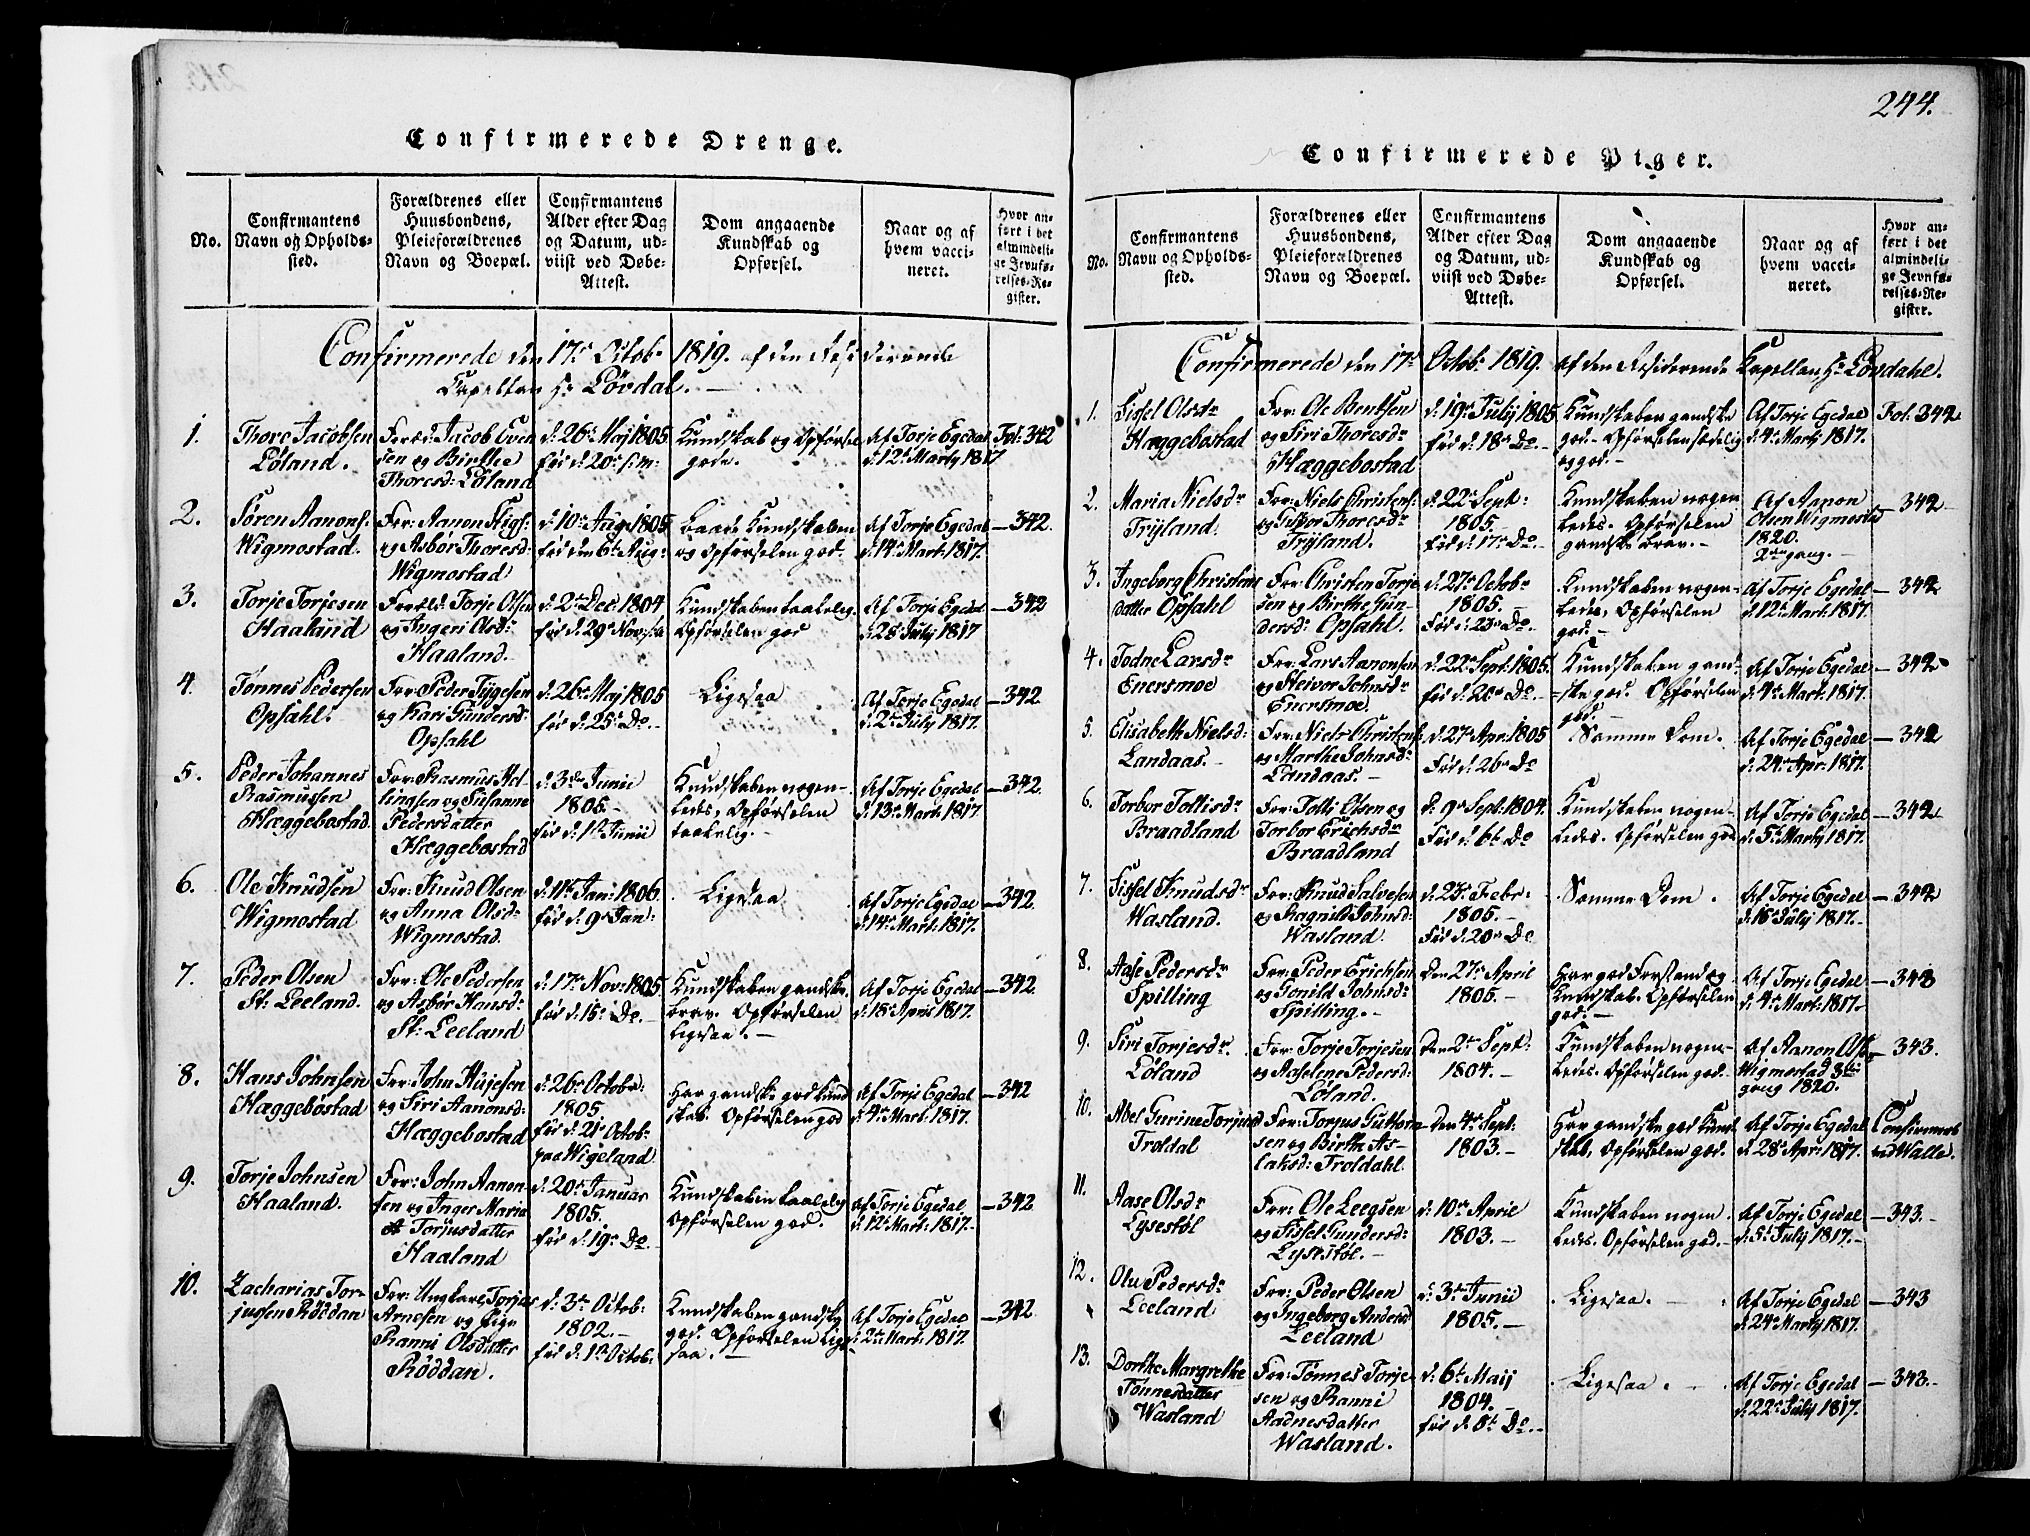 244.
Confirmerede Drenge.
No.
Confirmantens
Navn og Opholds-
sted.
Forældrenes eller
Huusbondens,
Pleieforældrenes
Navn og Boepæl.
Confirmantens
Alder efter Dag
og Datum, ud-
viist ved Døbe-
Attest.
Dom angaaende
Kundskab og
Opførsel.
Naar og af
hvem vacci-
neret.
Hvor an-
ført i det
almindeli-
ge Jevnfø-
relses-Re-
gister.
Confirmerede den 17de Octobr 1819. af den Residerende
Capellan Hr Løvdal.
1.
Thore Jacobsen
Løland.
Foræld: Jacob Even
sen og Birthe
Thoresd: Løland
d: 26de Maj 1805
fød d: 20de s: m:
Kundskab og Opførsel
gode.
Af Torje Egedal
d: 12te Marty 1817
Fol: 342
2.
Søren Aanons:
Wigmostad.
For: Aanon Stigs:
og Asbør Thoresd:
Wigmostad
d: 10de Aug: 1805
fød den 6te Aug:
Baade Kundskaben
og Opførselen god.
Af Torje Egedal
d: 14de Mart: 1817.
342.
3.
Torje Torjesen
Haaland
Foræld: Torje Olsen
og Ingeri Olsd:
Haaland.
d: 2den Dec: 1804
fød d: 29de Nov:
Kundskaben taalelig.
Opførselen god
Af Torje Egedal
d: 28de July 1817
342
4.
Tønnes Pedersen
Opsahl.
For: Peder Tygesen
og Kari Gundersd:
Opsahl
d: 26de Maj 1805
fød d: 25de Do
Ligesaa
Af Torje Egedal
d: 2den July 1817.
342.
5.
Peder Johannes
Rasmussen
Hæggebostad.
For: Rasmus Hel-
lingsen og Susanne
Pedersdatter
Hæggebostad
d: 3die Junii
1805.
fød d: 1ste Junii
Kundskaben nogen-
ledes, Opførselen
taalelig.
Af Torje Egedal
d: 13de Mart: 1817.
342.
6.
Ole Knudsen
Wigmostad
For: Knud Olsen
og Anna Olsd:
Wigmostad.
d: 11te Jan: 1806.
fød d: 9de Jan:
Ligesaa
Af Torje Egedal
d: 14de Mart: 1817.
342.
7.
Peder Olsen
St: Leeland.
For: Ole Pedersen
og Asbør Hansd:
St: Leeland
d: 17de Nov: 1805.
fød d: 15de Do.
Kundskaben gandske
brav. Opførselen
ligesaa.
Af Torje Egedal
d: 18de Aprii 1817.
342.
8.
Hans Johnsen
Hæggebøstad
For: John
og Siri Aanonsd:
Hæggebostad
d: 26de Octobr:
1805.
fød d: 21de Octobr
paa Wigeland
Har gandske god Kund
skab. Opførselen god
Af Torje Egedal
d: 4de Mart: 1817.
342
9.
Torje Johnsen
Haaland.
For: John Aanon-
sen og Inger Maria
Torjusdatter
Haaland
d: 20de Januar
1805.
fød d: 19de Do.
Kundskaben taalelig
Opførselen god.
Af Torje Egedal
d: 12te Mart: 1817.
342.
10.
Zacharias Tor-
jussen Røddan
For: Ungkarl Torjus
Arnesen og Pige
Ranni Olsdatter
Røddan.
d: 3die Octob:
1802.
fød d: 1ste Octob:
Kundskaben gandske
god. Opførselen lige-
saa.
Af Torje Egedal
d: 2den Mart: 1817.
342
Confirmerede Piger.
No.
Confirmantens
Navn og Opholds-
sted.
Forældrenes eller
Huusbondens,
Pleieforældrenes
Navn og Boepæl.
Confirmantens
Alder efter Dag
og Datum, ud-
viist ved Døbe-
Attest.
Dom angaaende
Kundskab og
Opførsel.
Naar og af
hvem vacci-
neret.
Hvor an-
ført i det
almindeli-
ge Jevnfø-
relses-Re-
gister.
Confirmerede den 17de Octobr 1819. af den Residerende Kapellan Hr Løvdahl.
1.
Sissel Olsdr
Hæggebøstad
For: Ole Bentsen
og Siri Thoresdr
Hæggebostad
d: 19de July 1805
fød d: 18de Do.
Kundskaben gandske
god. Opførselen sædelig
og god.
Af Torje Egedal
d: 4de Marty 1817.
Fol. 342
2.
Maria Nielsdr
Tryland.
For: Niels Christens:
og Thoresdr
Tryland.
d: 22de Sept:
1805.
fød d: 17de Do.
Kundskaben nogen
ledes. Opførselen
gandske brav.
Af Aanon
Olsen Wigmostad
1820.
2den gang.
342
3.
Ingeborg Christens
datter Opsahl
For: Christen Torje
sen og Birthe Gun-
dersd: Opsahl.
d: 27de Octobr
1805.
fød d: 23de Do.
Kundskaben nogen-
ledes, Opførselen
god.
Af Torje Egedal
d: 12te Mart: 1817.
342
4.
Todne Larsdr
Enersmoe
For: Lars Aanonsen
og Steivor Johnsdr
Enersmoe.
d: 22de Sept: 1805.
fød d: 20de Do.
Kundskaben gand-
ske god. Opførselen
god.
Af Torje Egedal
d: 4de Mart: 1817.
342
5.
Elisabeth Nielsd:
Landaas.
For: Niels Christens:
og Marthe Johnsdr
Landaas.
d: 27de Apr: 1805
Fød d: 26de Do
Samme Dom.
Af Torje Egedal
d: 24de Apr: 1817.
342
6.
Torbor Tollisdr
Braadland
For: Tolli Olsen og
Torbor Erichsdr
Braadland
d: 9de Sept: 1804.
Fød d: 6te Do
Kundskaben nogen-
ledes. Opførselen god
Af Torje Egedal
d: 5te Marty 1817.
342
7.
Sissel Knudsdr
Wasland.
For: Knud Salvesen
og Ragnild Johnsd:
Wasland.
d: 23de Febr:
1805.
Fød d: 20de Do
Samme Dom.
Af Torje Egedal
d: 16de July 1817.
342
8.
Aase Pedersdr
Spilling
For: Peder Erichsen
og Gonild Johnsdr
Spilling.
Den 27de April
1805.
Har god Forstand og
Kundskab. Opførselen
god.
Af Torje Egedal
d: 4de Mart: 1817.
343
9.
Siri Torjesdr.
Løland
For: Torje Torjesen
og Aaselene Pedersd:
Løland.
Den 2den Sept:
1804.
Kundskaben nogen-
ledes. Opførselen god.
Af Aanon Olsen
Wigmostad 3die
gang 1820.
343.
10.
Abel Gurine Torjusd
Troldal
For: Torjus Guttorm-
sen og Birthe As-
laksd: Troldahl.
Den 4de Sept:
1803.
Har gandske god Kund
skab, Opførselen god.
Af Torje Egedal
d: 28de Apr: 1817.
Confirmeret
ved Walle.
11.
Aase Olsdr
Lysestøl
For: Ole Leegsen
og Sissel Gundersd:
Lysestøl.
d: 10de April
1803.
Kundskaben nogen
ledes. Opførselen god.
Af Torje Egedal
d: 5te July 1817.
343.
12.
Olu Pedersdr
Leeland
For: Peder Olsen
og Ingeborg Andersd
Leeland
d: 3die Junii
1805.
Ligesaa.
Af Torje Egedal
d: 24de Marty 1817.
343
13.
Dorthe Margrethe
Tønnesdatter
Wasland
For: Tønnes Torje
sen og Ranni
Aadnesdatter
Wasland.
d: 6te Maij
1804.
fød d: 5te Do.
Ligesaa.
Af Torje Egedal
d: 22de July 1817.
343.